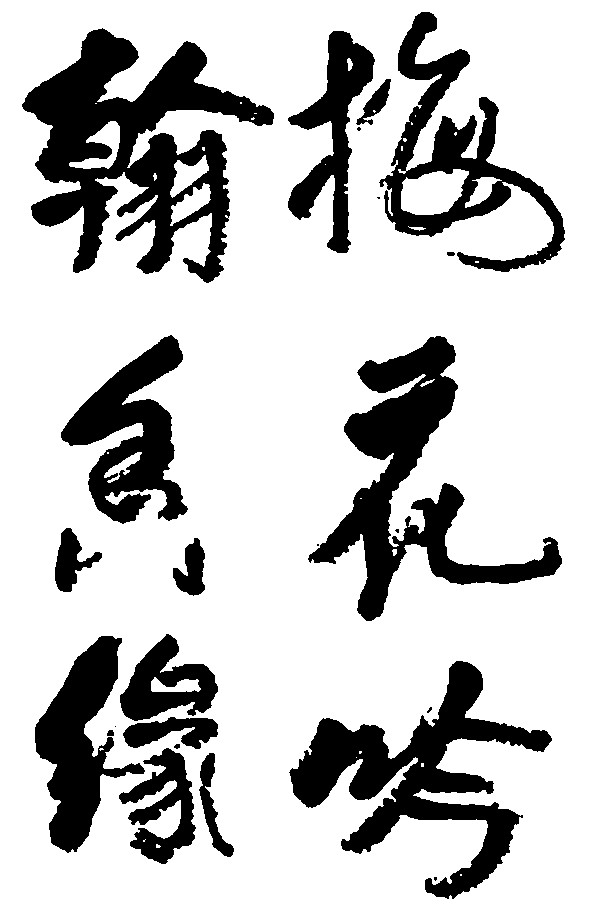 梅花吟
翰缘